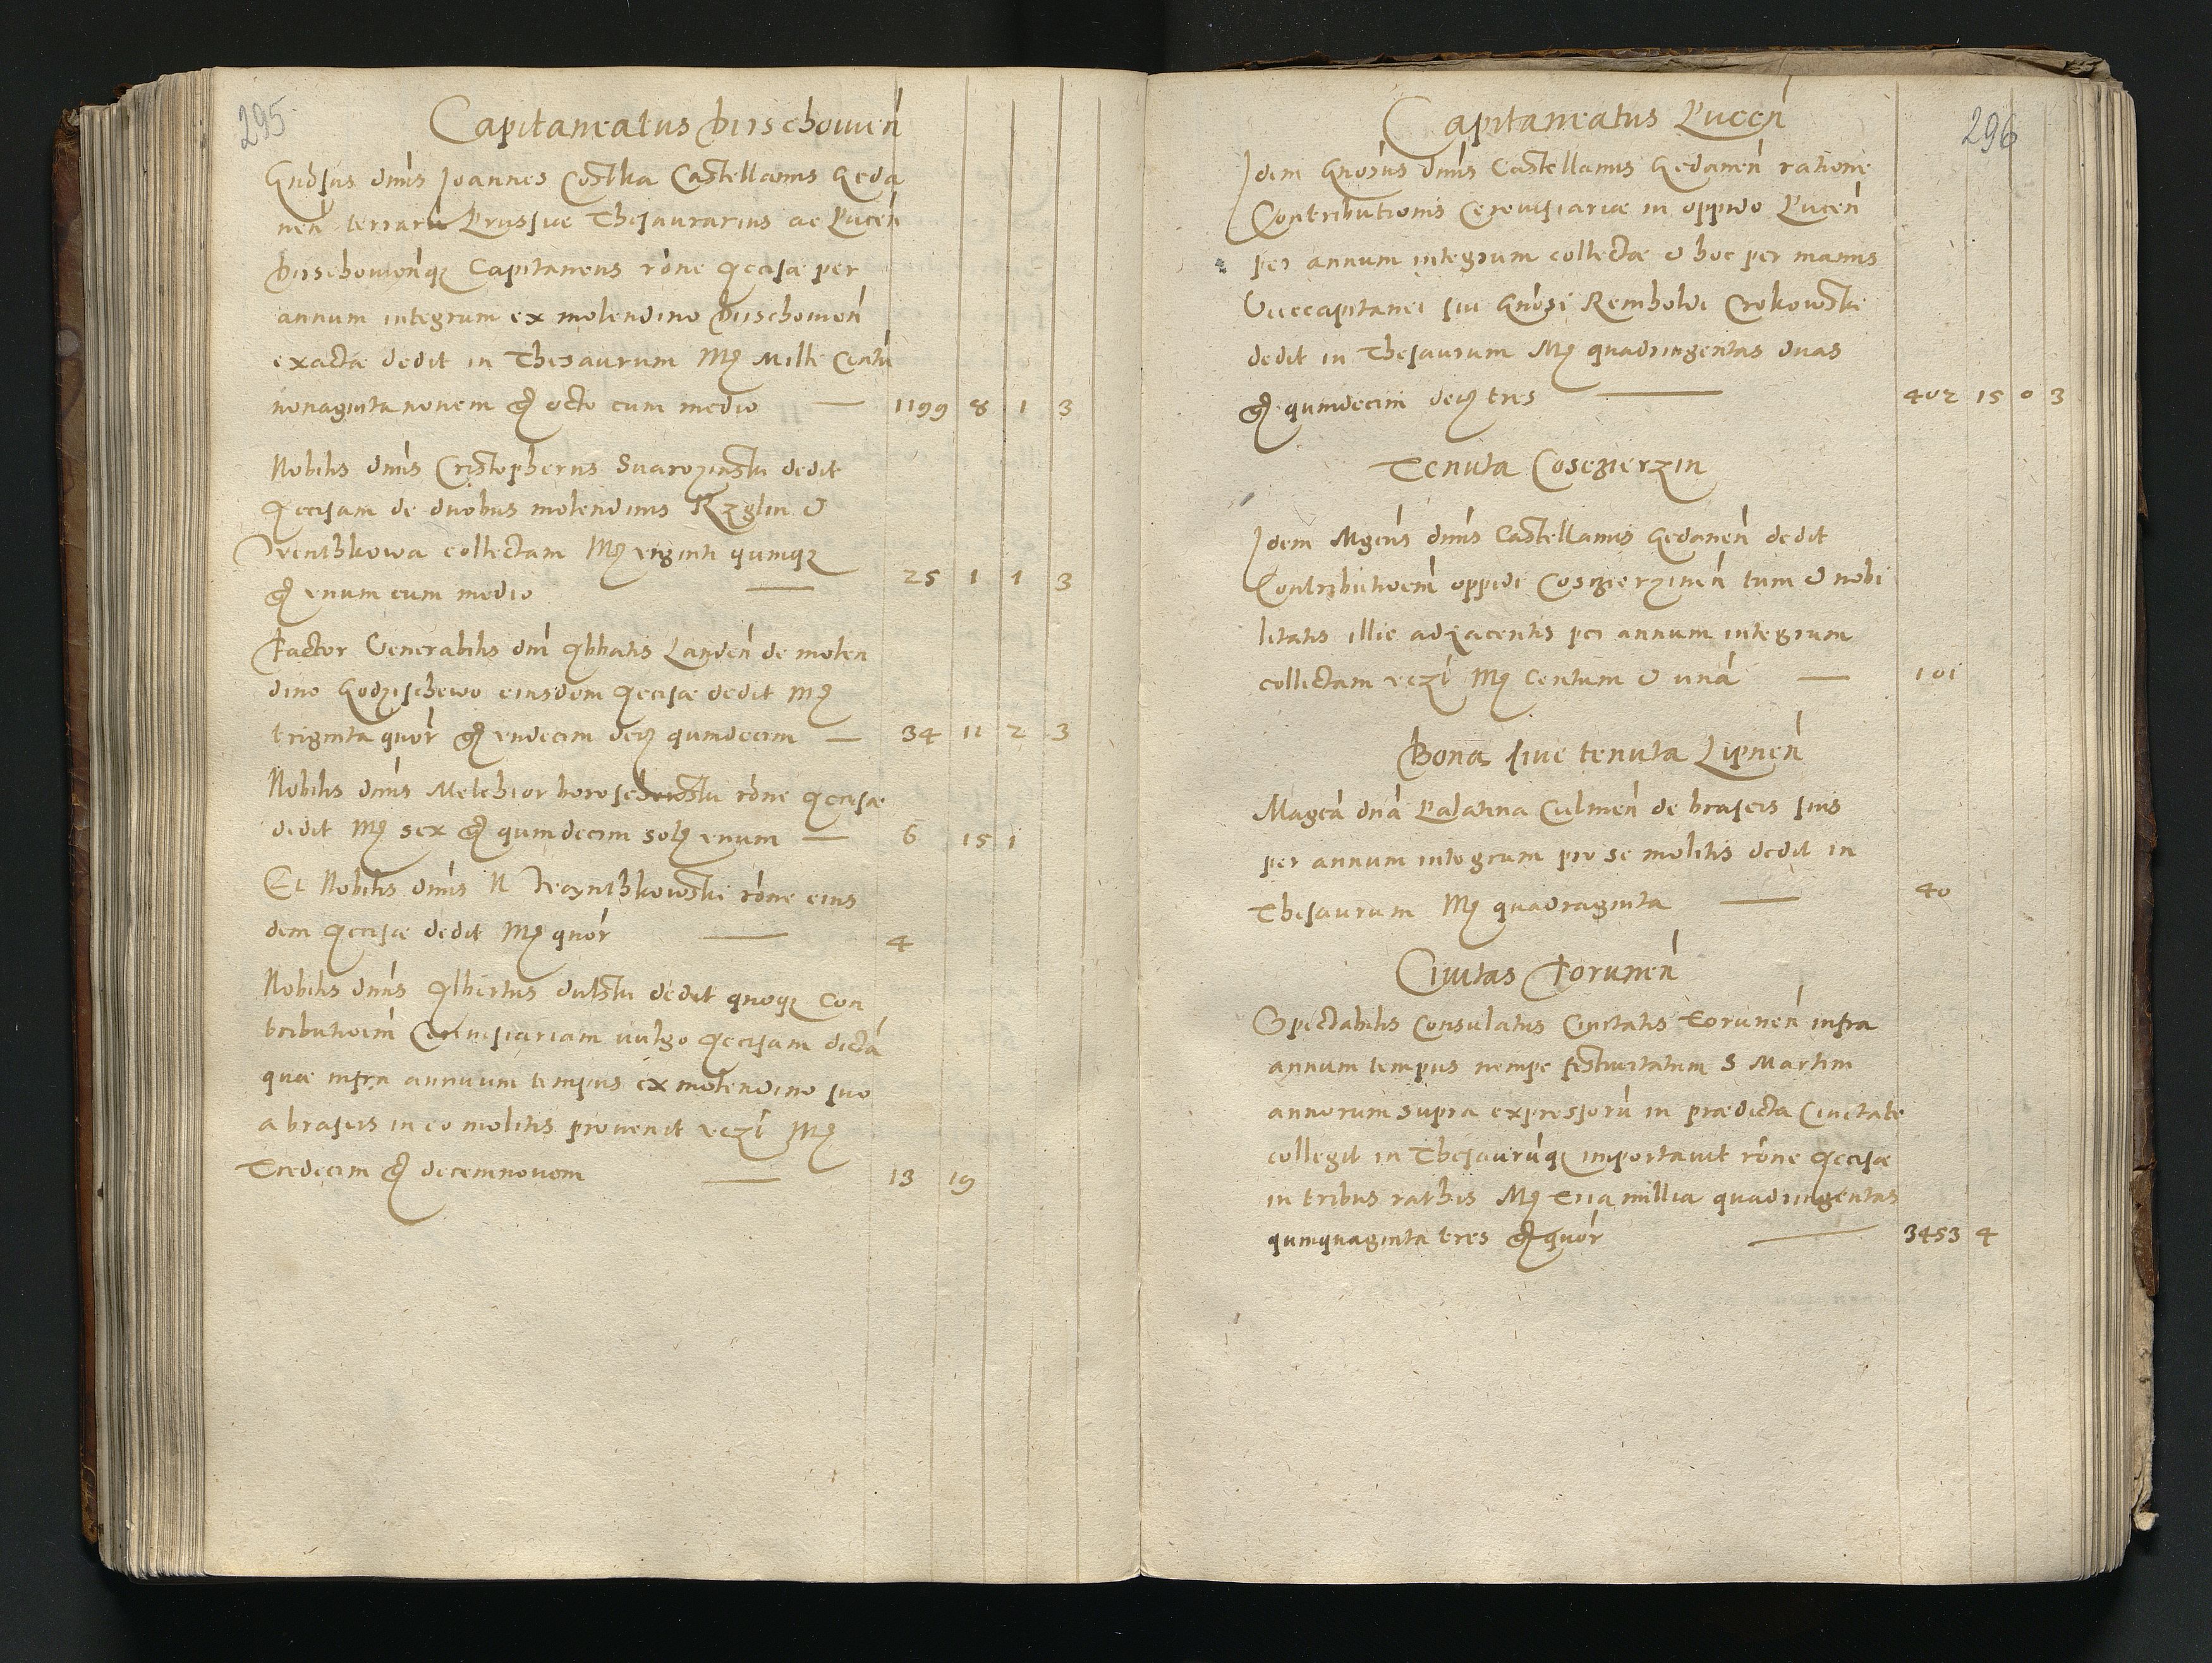 295
Capitaneatus Dirschouien̄
Gn̄osus dn̄us Joannes Costka Castellanus Geda
nen̄ terrarū Prussiae Thesaurarius ac Pucen̄
Dirschouien̄q Capitaneus rōne Accisae per
annum integrum ex molendino Dirschouien̄
exactae dedit in Thesaurum Mc Mille Centū
nonaginta nonem gr octo cum medio — 1199 8 1 3
Nobilis dn̄us Cristopherus dedit
Accisam de duobus molendinis Rzglin &
collectam Mc viginti quinque
gr vnum cum medio — 25 1 1 3
Factor Venerabilis dn̄i Abbatis Landen̄ de molen
dino Godzischewo eiusdem Accisae dedit Mc
triginta quōr gr vndecim den quindecim — 34 11 2 3
Nobilis dn̄us Melchior rōne Accisae
dedit Mc sex gr quindecim sol vnum — 6 15 1
Et Nobilis dn̄us N rōne eius
dem Accisae dedit Mc quōr — 4
Nobilis dn̄us Albertus dulski dedit quoque Con
tributioēm Cereuisiariam vulgo Accisam dictā
quae infra annuum tempus ex molendino suo
a braseis in eo molitis prouenit vczi Mc
Tredecim gr decemnouem — 13 19
296
Capitaneatus Pucen̄
Idem Gn̄osus dn̄us Castellanus Gedanen̄ ratione
Contributionis Cereuisiariae in oppido Pucen̄
per annum integrum collectae & hoc per manus
Vicecapitanei sui Gn̄osi Remholdi Crokowski
dedit in Thesaurum Mc quadringentas duas
gr quindecim den tres — 402 15 0 3
Tenuta Coscierzin
Idem Mgcus dn̄us Castellanus Gedanen̄ dedit
Contributioēm oppidi Coscierzinen̄ tum & nobi
litatis illic adiacentis per annum integrum
collectam vczi Mc Centum & unā — 101
Bona siue tenuta Lipnen̄
Magcā dn̄a Palatina Culmen̄ de braseis suis
per annum integrum pro se molitis dedit in
Thesaurum Mc quadraginta — 40
Ciuitas Torunen̄
Spectabilis Consulatus Ciuitatis Torunen̄ infra
annum tempus nempe festiuitatum S Martini
annorum supra expressorū in praedicta Ciuitate
collegit in Thesaurūq importauit rōne Accisae
in tribus rathis Mc Tria millia quadringentas
quinquaginta tres gr quōr — 3453 4